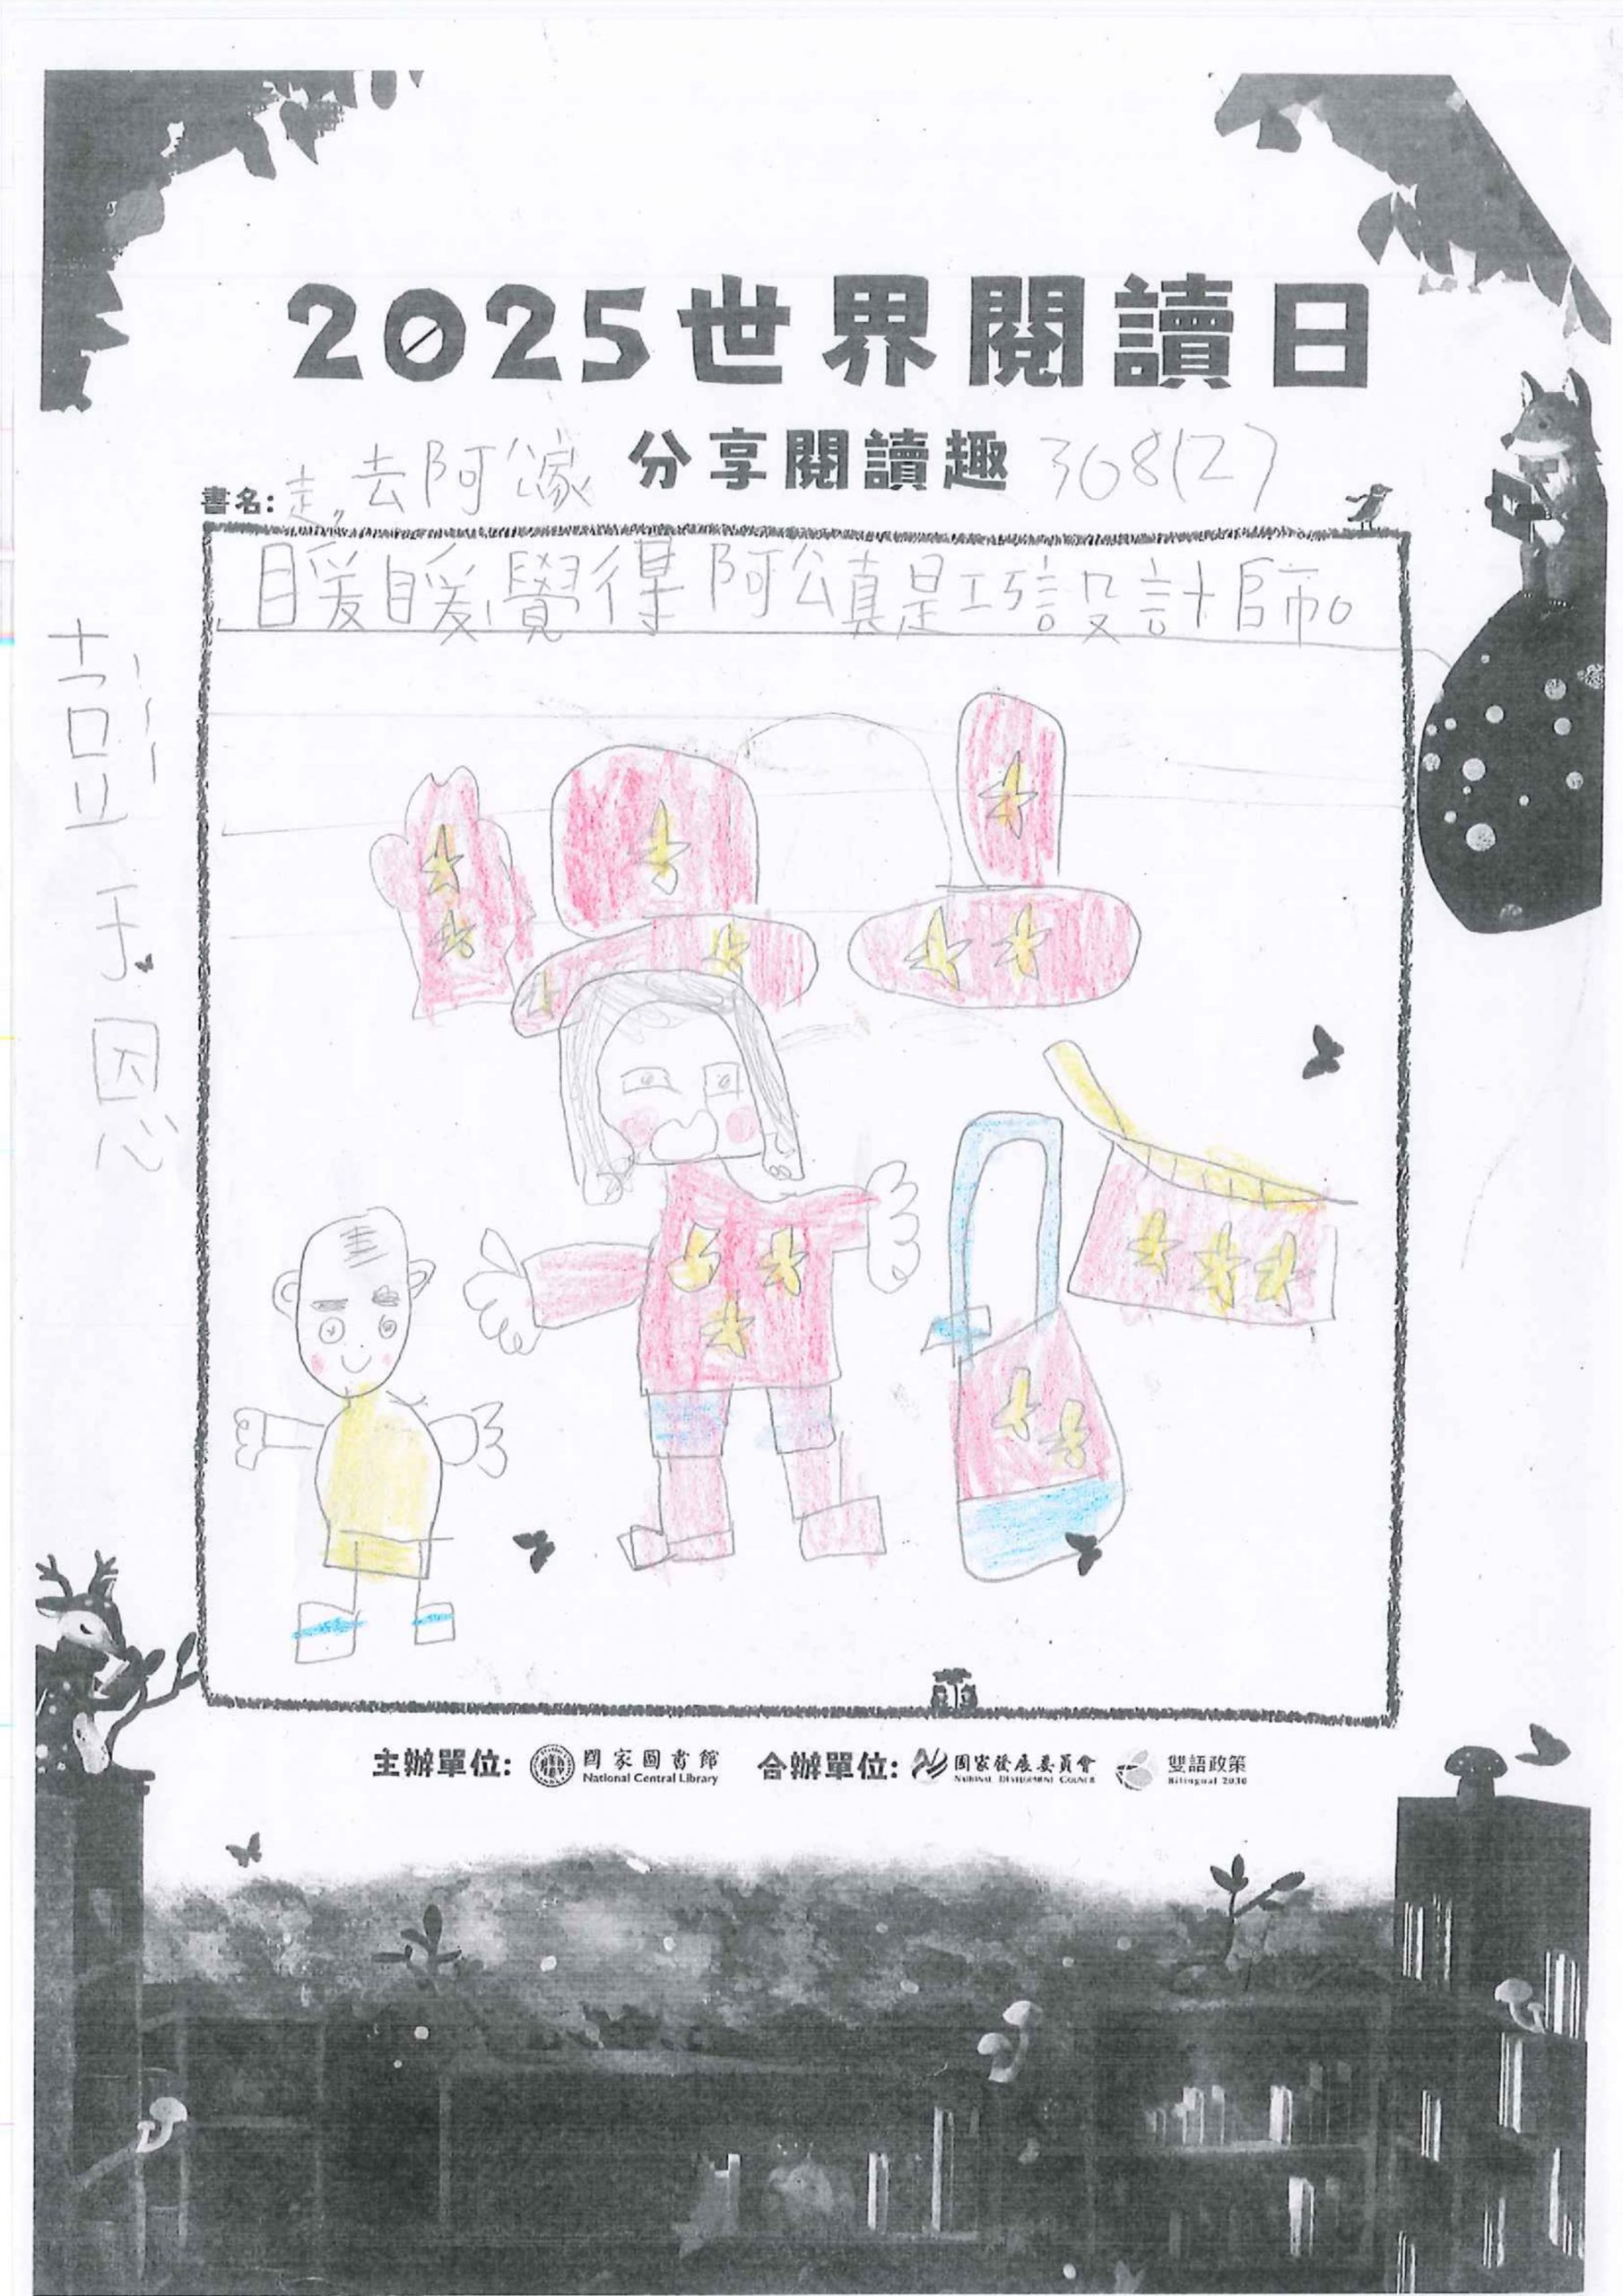 2025世界閱讀日
分享閱讀趣
308(2)
書名:走,去阿公家
暖暖覺得阿公真是巧設計師。
彭子恩
主辦單位: 國家圖書館 合辦單位: 國家發展委員會 雙語政策
National Central Library NATIONAL DEVELOPMENT COUNCIL Bilingual 2030